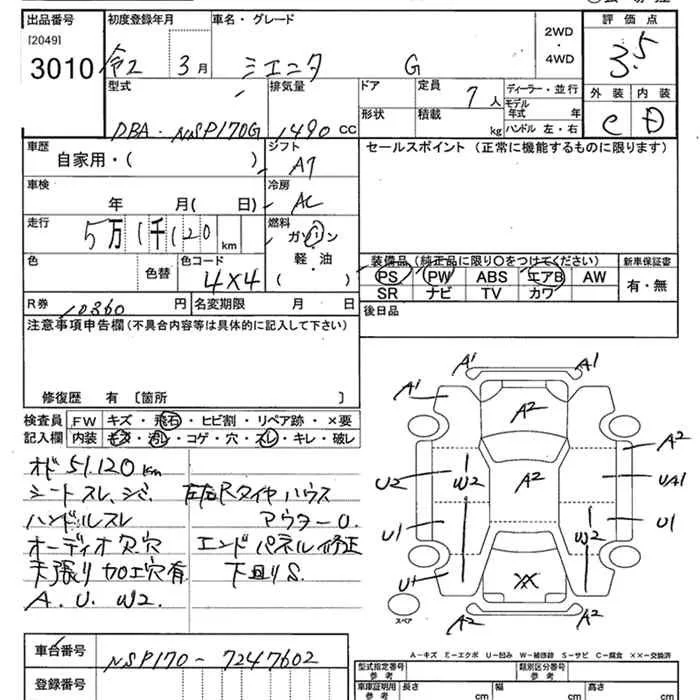 出品番号 初度登録年月 車名・グレード 2WD ・ 4WD 評価点
[2049]
3010 令2 3月 シエンタ G 3.5
型式 排気量 ドア 定員 7人 ディーラー・並行 外装 内装
形状 積載 kg モデル年式 年 ハンドル 左・右
DBA-NSP170G 1490cc C D
車歴 自家用・( ) シフト AT セールスポイント (正常に機能するものに限ります)
車検 年 月( 日) 冷房 AC
走行 5万1千120km 燃料 ガソリン 軽・油 ( )
色 色替 色コード 4X4 装備品 (純正品に限り○をつけてください) 新車保証書
PS PW ABS エアB AW 有・無
SR ナビ TV カワ
R券 10360円 名変期限 月 日 後日品
注意事項申告欄(不具合内容等は具体的に記入して下さい)
修復歴 有 〔箇所 〕
検査員 FW キズ・飛石・ヒビ割・リペア跡・×要
記入欄 内装 キズ・汚れ・コゲ・穴・スレ・キレ・破レ
オド 51,120km
シートスレ、シミ 左右Rタイヤハウス
ハンドルスレ アウターU.
オーディオ欠穴 エンドパネル修正
天張り加工穴有 下回りS.
A. U. W2.
A1 A1
A1 A2 A2
U2 W2 A2 UA1
U1 W2 U1
U1 XX
A2 A2
スペア
A-キズ E-エクボ U-凹み W-補修跡 S-サビ C-腐食 ××-交換済
車台番号 NSP170-7247602
登録番号
型式指定番号 参考 類別区分番号 参考
車庫証明用 参考 長さ cm 幅 cm 高さ cm